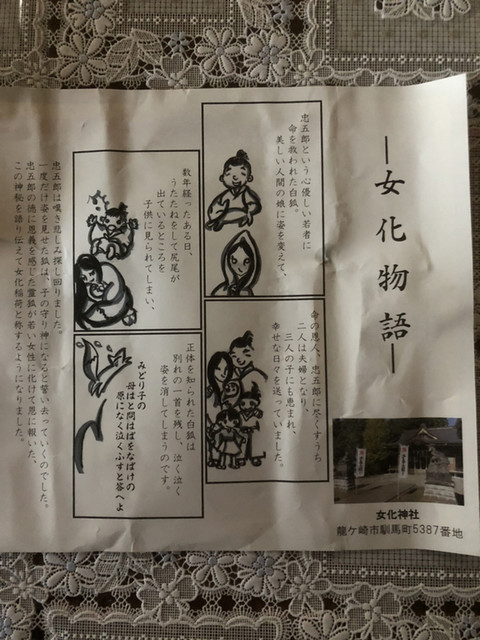 ―女化物語―
忠五郎という心優しい若者に
命を救われた白狐。
美しい人間の娘に姿を変えて、
命の恩人、忠五郎に尽くすうち
二人は夫婦となり、
三人の子にも恵まれ、
幸せな日々を送っていました。
数年経ったある日、
うたたねをして尻尾が
出ているところを
子供に見られてしまい、
正体を知られた白狐は
別れの一首を残し、泣く泣く
姿を消してしまうのです。
みどり子の
母はと問はばをなばけの
原になく泣くふすと答へよ
忠五郎は嘆き悲しみ探し回りました。
一度だけ姿を見せた狐は、子の守り神になると誓い去っていくのでした。
忠五郎の徳に恩義を感じた霊狐が若い女性に化けて恩に報いた、
この神秘を語り伝えて女化稲荷と称するようになりました。
女化神社
龍ケ崎市馴馬町5387番地